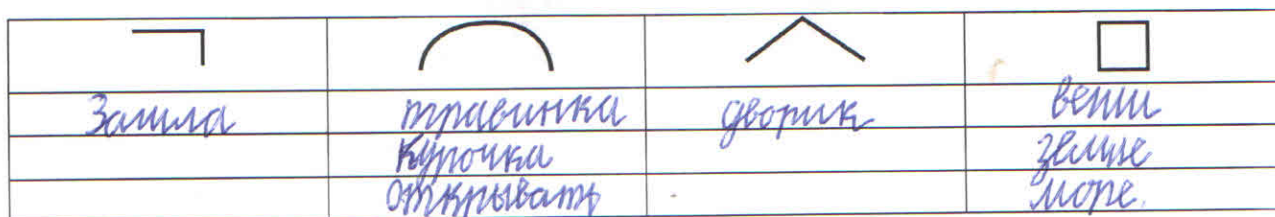 Зашла травинка дворик вещи
курочка земле
открывать море.